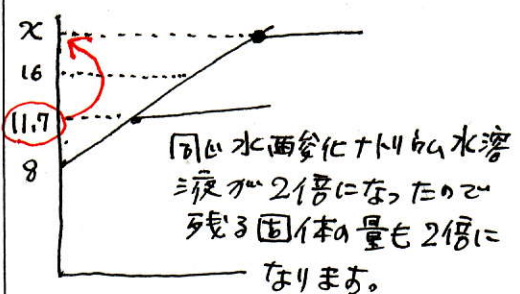 x
16
11.7
8
同じ水酸化ナトリウム水溶
液が2倍になったので
残る固体の量も2倍に
なります。